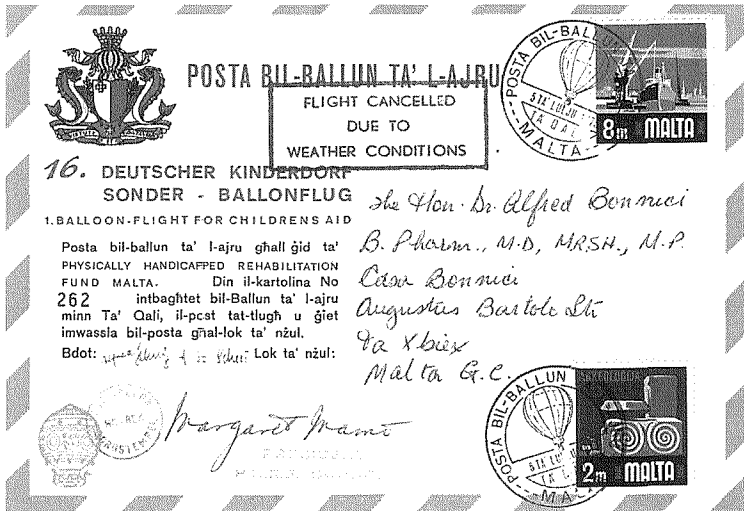 POSTA BIL-BALLUN TA' L-AJRU
FLIGHT CANCELLED
DUE TO
WEATHER CONDITIONS
POSTA BIL-BALLUN
5 TA' LULJU
TA QALI
MALTA
8m MALTA
16. DEUTSCHER KINDERDORF
SONDER - BALLONFLUG
1. BALLOON-FLIGHT FOR CHILDRENS AID
Posta bil-ballun ta' l-ajru għall ġid ta'
PHYSICALLY HANDICAPPED REHABILITATION
FUND MALTA. Din il-kartolina No
262 intbagħtet bil-Ballun ta' l-ajru
minn Ta' Qali, il-post tat-tlugħ u ġiet
imwassla bil-posta għal-lok ta' nżul.
Bdot: Lok ta' nżul:
The Hon. Dr. Alfred Bonnici
B. Pharm., M.D, MRSH., M.P.
Casa Bonnici
Augustus Bartolo Str
Ta Xbiex
Malta G.C.
Margaret
POSTA BIL-BALLUN
5 TA' LULJU
MALTA
2m MALTA